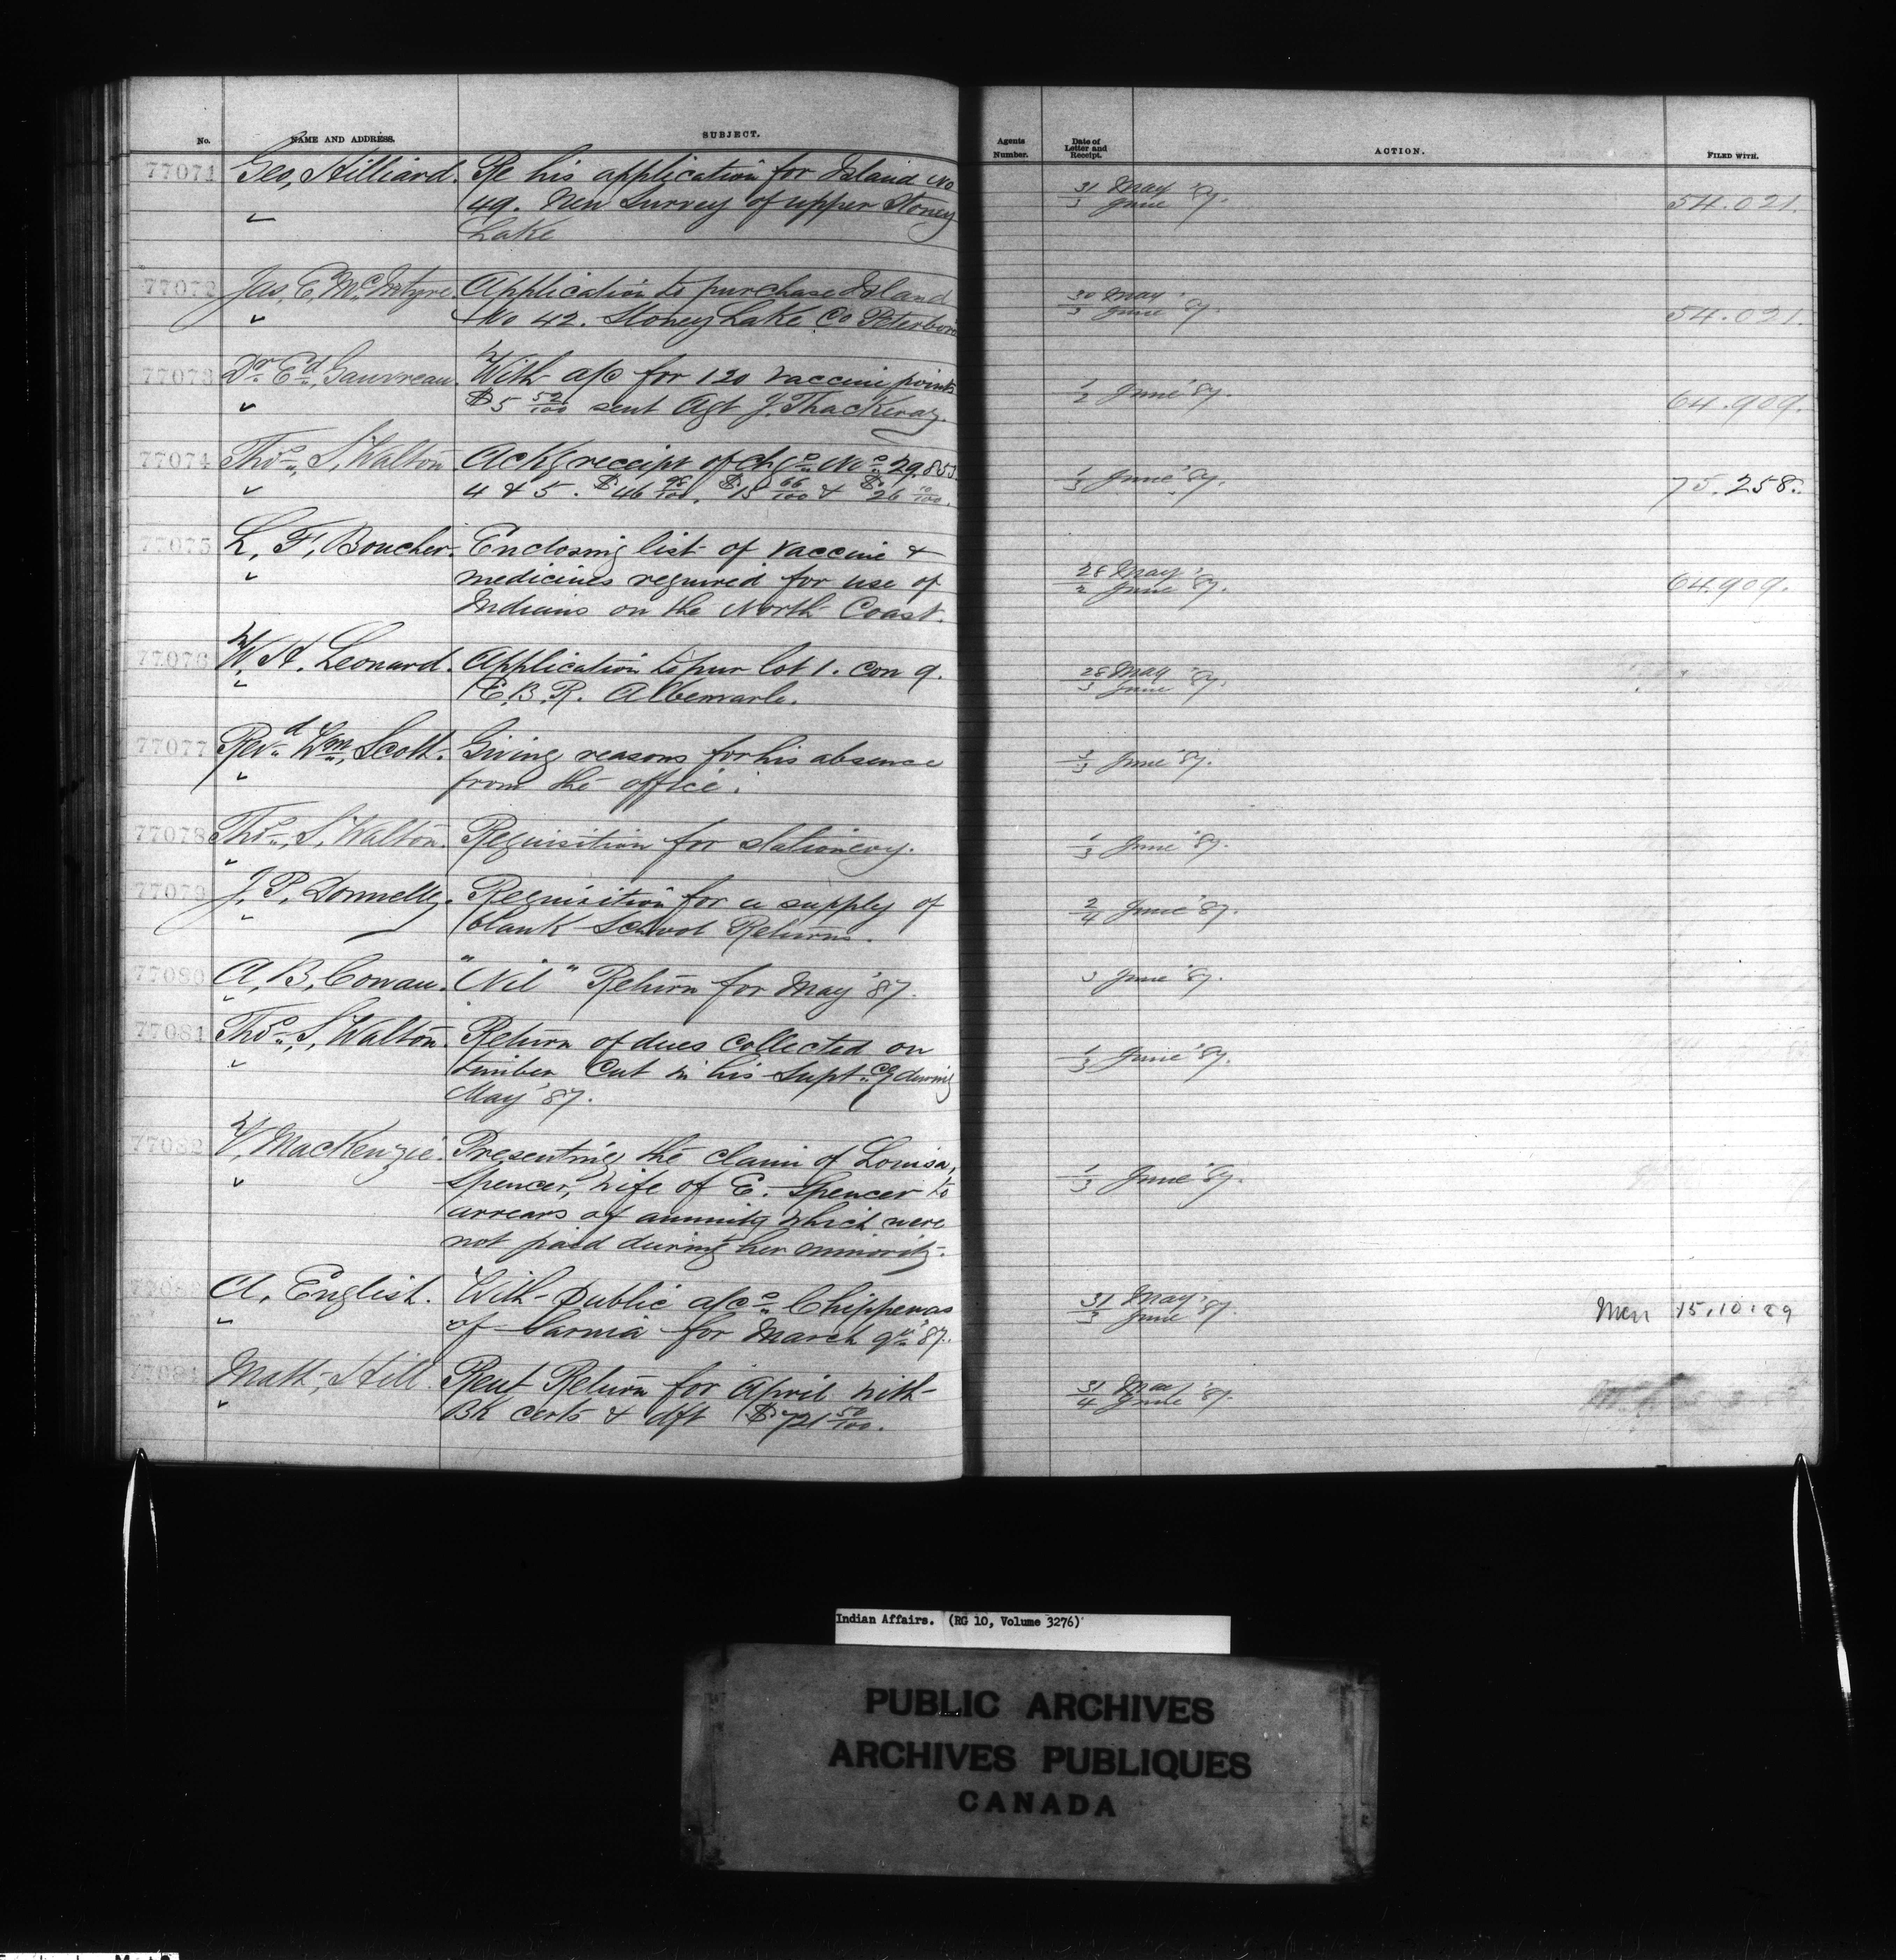 No. NAME AND ADDRESS. SUBJECT. Agents Number. Date of Letter and Receipt. ACTION. FILED WITH.
77071 Geo, Hilliard. Re his application for Island No
49. New Survey of upper Stoney
Lake
31/3 May June '87. 54.021.
77072 Jas, E, McIntyre. Application to purchase Island
No 42. Stoney Lake Co Peterboro
30/3 May June '87. 54.021.
77073 Dr Ed, Gauvreau. With a/c for 120 vaccine points
$5 52/100 sent Agt J. Thackeray.
1/2 June '87. 64.909.
77074 Thos, S, Walton Ackg receipt of chqs Nos 29.853
4 & 5. $46 98/100, $15 66/100 & $26 10/100.
1/3 June '87. 75.258.
77075 L, F, Boucher. Enclosing list of vaccine &
medicines required for use of
Indians on the North Coast.
28/2 May June '87. 64.909.
77076 W, H. Leonard. Application to pur lot 1. con 9.
E, B, R. Albemarle.
28/3 May June '87.
77077 Revd Wm, Scott. Giving reasons for his absence
from the office.
3/3 June '87.
77078 Thos, S, Walton. Requisition for stationery.
1/3 June '87.
77079 J, P, Donnelly. Requisition for a supply of
blank School Returns.
2/4 June '87.
77080 A, B, Cowan. "Nil" Return for May '87.
3 June '87.
77081 Thos, S, Walton. Return of dues collected on
timber cut in his Suptcy during
May '87.
1/3 June '87.
77082 W, MacKenzie. Presenting the claim of Louisa,
Spencer, wife of E. Spencer to
arrears of annuity which were
not paid during her minority.
1/3 June '87.
77083 A, English. With Public a/cs Chippewas
of Sarnia for March qr '87.
31/3 May June '87. Mem 15.10.89
77084 Matt, Hill Rent Return for April with
Bk certs & dft $721 50/100.
31/4 May June '87.
Indian Affairs. (RG 10, Volume 3276)
PUBLIC ARCHIVES
ARCHIVES PUBLIQUES
CANADA